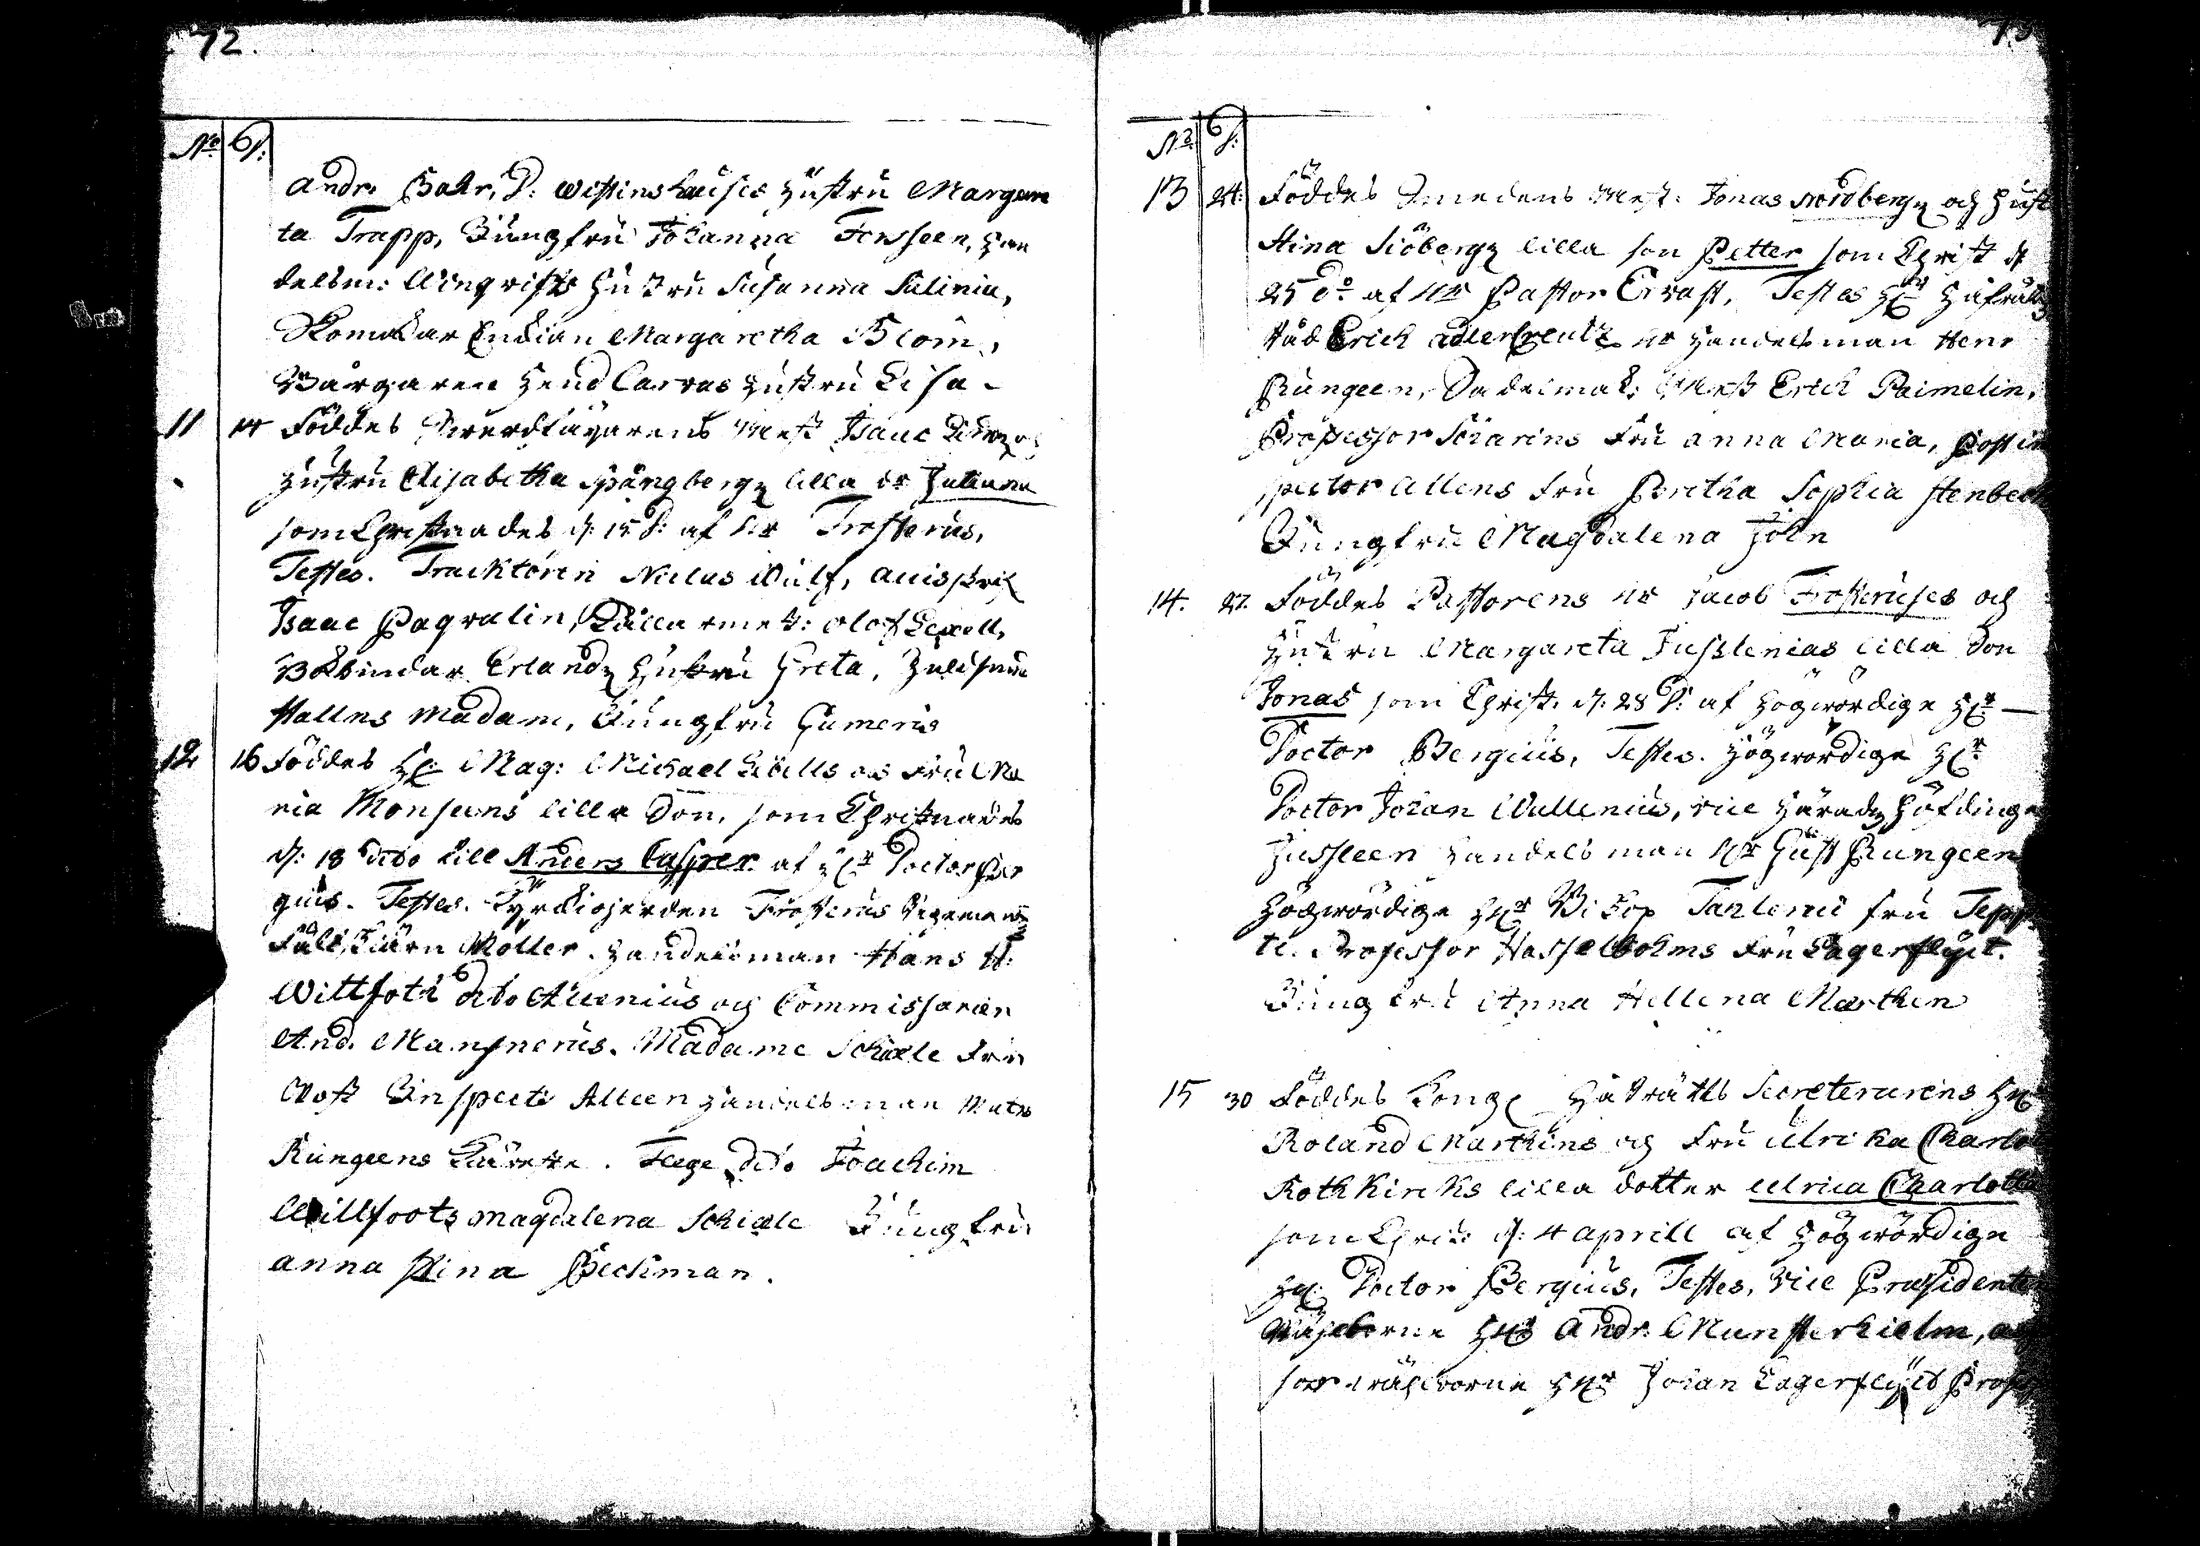 72.
No d:
Andr. Bahr, D: Westinshauses hustru Marga
ta Trapp, Jungfru Johanna Forsseen, han
delsm: Wingrists hustru Susanna Salinia,
Skomakar Enkian Margaretha Blom,
Borgaren Hend Carvas hustru Lisa
11 14 Föddes Swerdfäjarens Mest Isaac
hustru Elisabetha Spångberg lilla dr Juliana
som Christnades d: 15 d: af Hr Frosterus,
Testes. Tracktören Niclas Wulf, aviskrif
Isaac Pagvalin, Källarmest: Olof Lexell,
Bokbindar Erland hustru Greta,
Hallns Madam, Jungfru Gumerus
12 16 Föddes Hr Mag: Michael Libells och Fru Ma
ria Monseens lilla son, som Christnades
d: 18 dito till Anders Casper af Hr Doctor Ber
gius. Testes. Frosterus
Fält Möller. Handelsman Hans H:
Wittfoth dito Allenius och Commissarien
And. Mansnerus. Madame Schiæle Fru
Post Inspect Alleen handelsman Mats
Rungeens. Feege dito Joachim
Wittfoots Magdalena Schiæle Jungfru
Anna Stina Beckman.
73
No d:
13 24: Föddes Smedens Mest. Jonas Nordberg och hust
Stina Siöberg lilla son Petter som Christ d
25 do af Hr Pastor Ervast, Testes Hr Håfrätt
Råd Erick Adlercreutz Hr Handelsman Henr
Rungeen, Sadelmak: Mest Erich Palmelin,
Professor Scarins Fru Anna Maria, Post in
spector Allens Fru Beretha Sophia Stenbeck
Jungfru Magdalena
14. 27. Föddes Pastorens Hr Jacob Frosteruses och
hustru Margareta Fusslenias lilla son
Jonas som Christ. d: 28 d: af Högwördige Hr
Doctor Bergius, Testes. Högwördige Hr
Doctor Johan Wallenius, vice Häradz höfdingen
Jussleen Handelsman Hr Gust Rungeen
Högwördige Hr Biskop Fru Tepp
ti. Professor Hasselbohms Fru Lagerflyct.
Jungfru Anna Hellena Marthen
15 30 Föddes Kongl Håfrätts Secreterarens Hr
Roland Marthins och Fru Ulrika Charlo
Rothkirchs lilla dotter Ulrica Charlotta
som Chris: d: 4 Aprill af Högwördige
Hr Doctor Bergius, Testes, Vice Præsidenten
Wälborne Hr Andr. Munsterhielm, as
sor wälborne Hr Johan Lagerflyct Prof